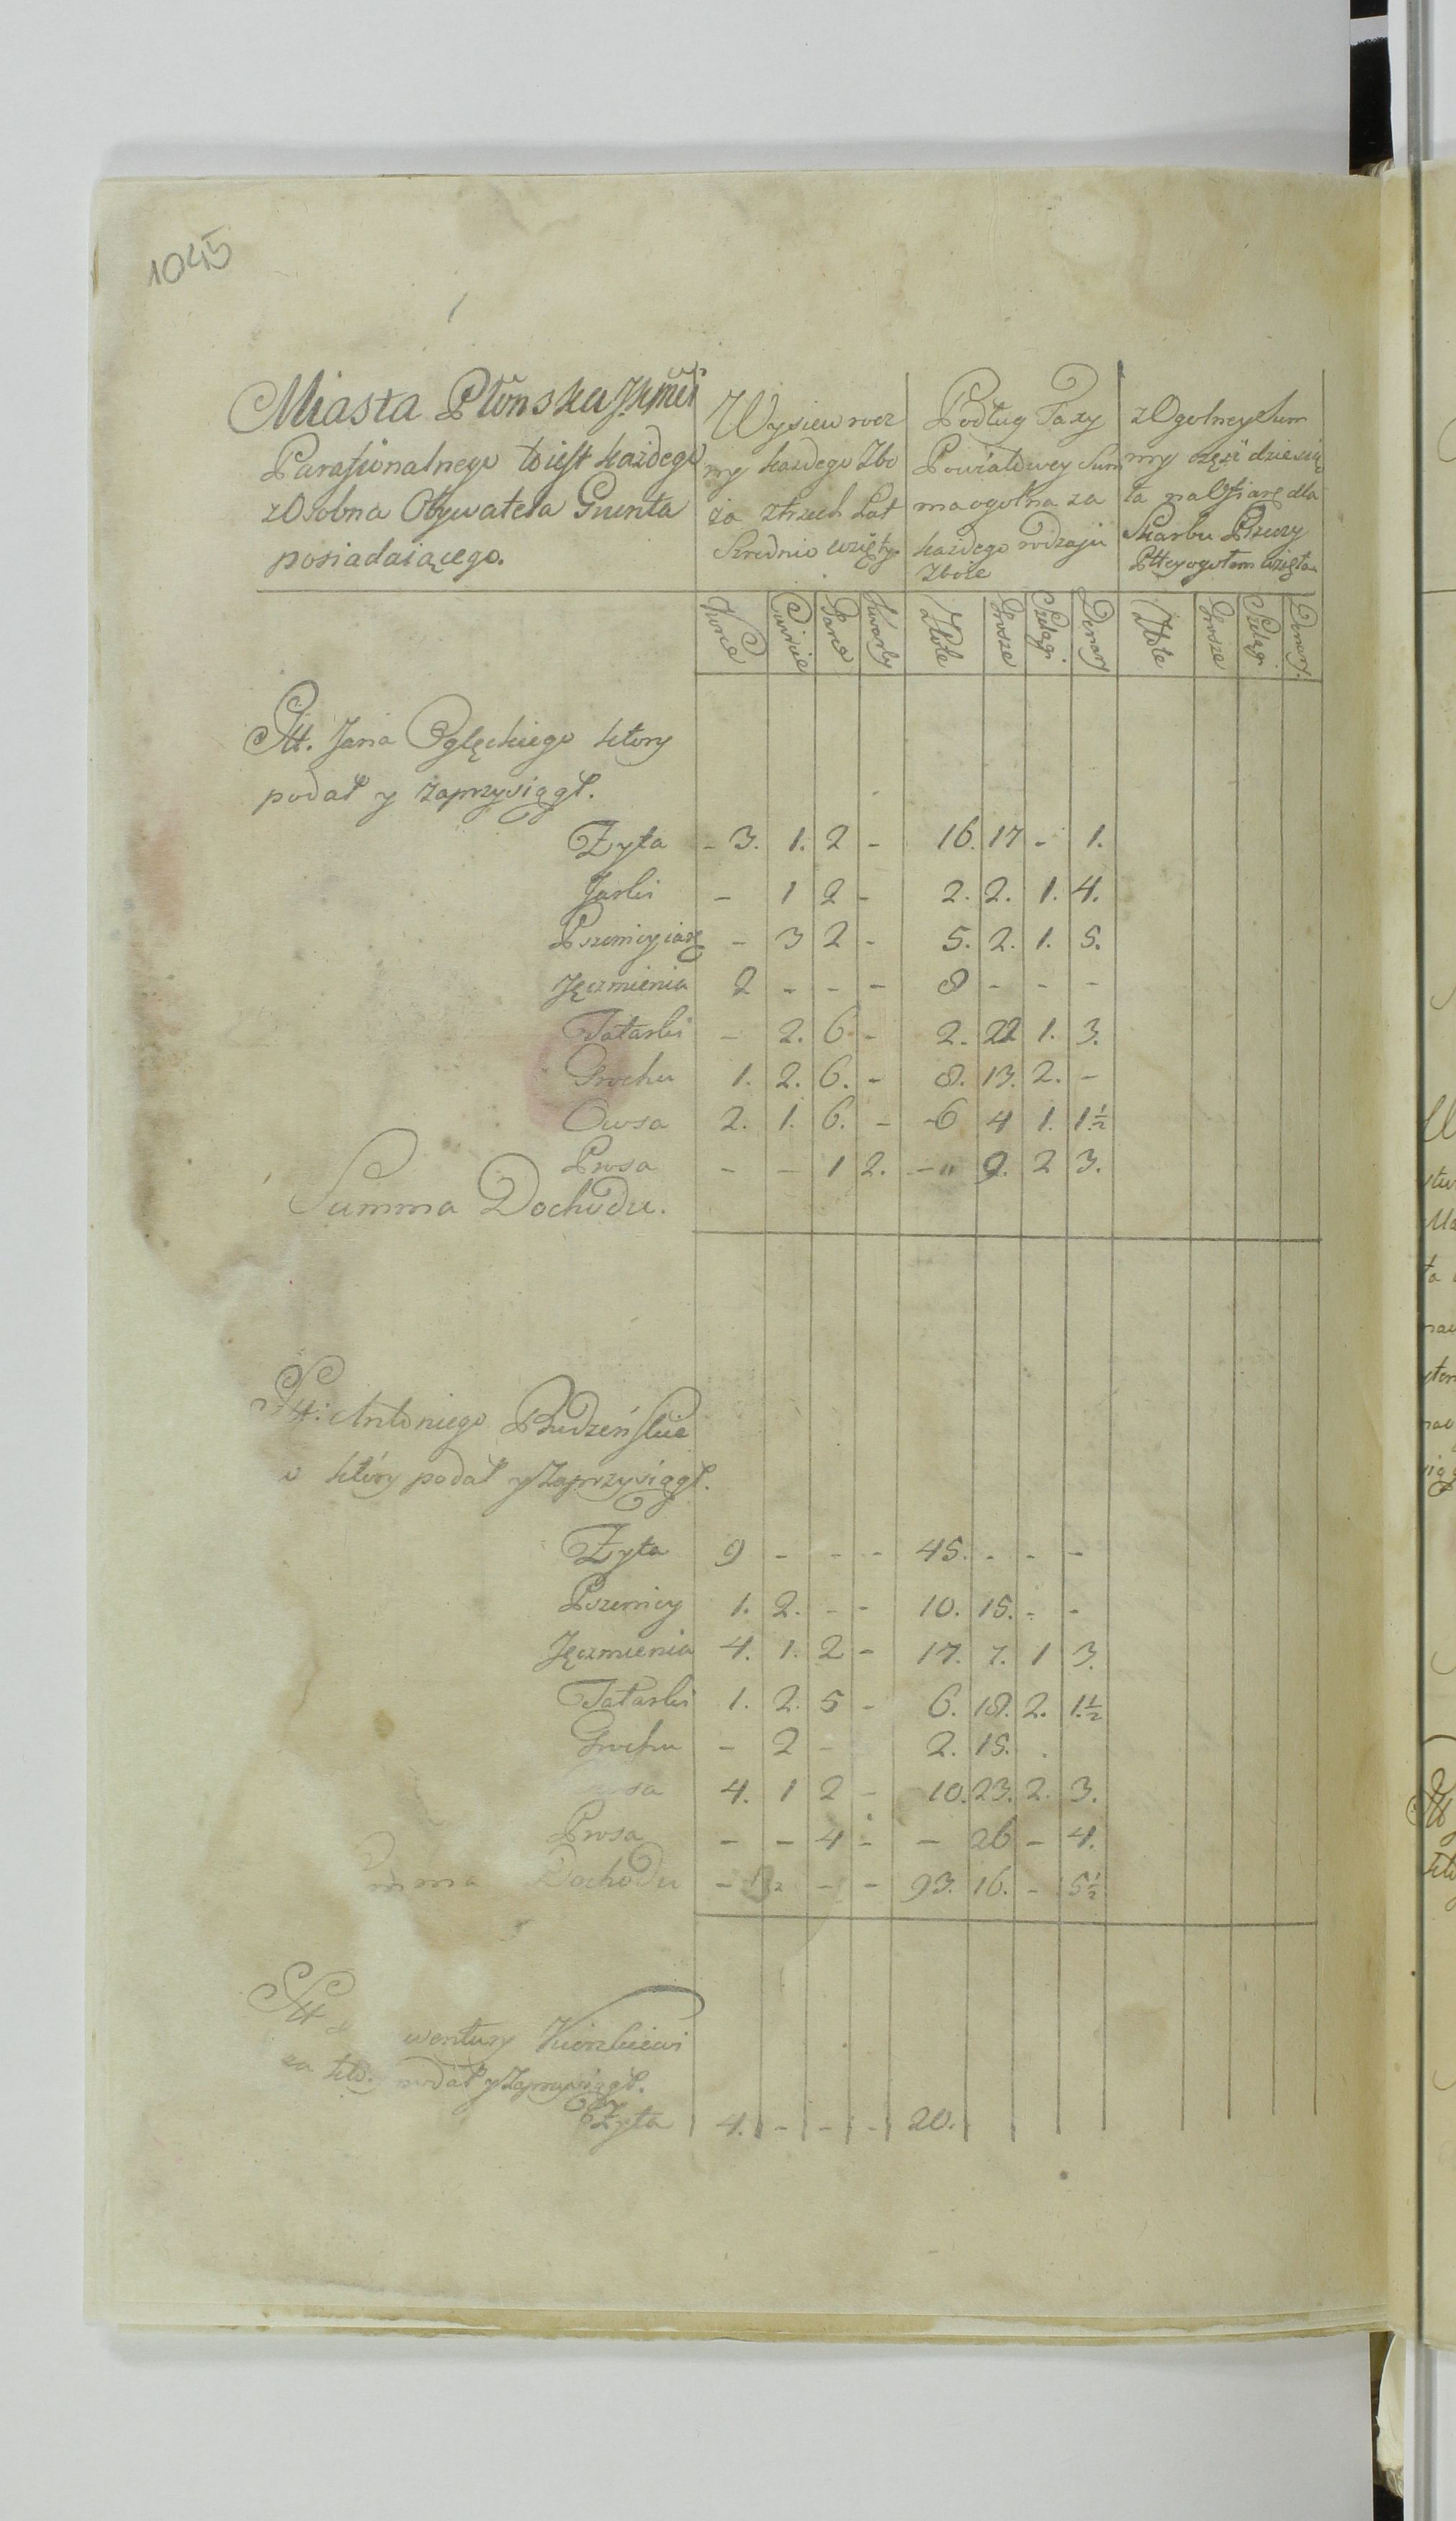 1045
Miasta Płonska Jmci
Parafionalnego to iest każdego
z Osobna Obywatela Grunta
posiadaiącego.
Wysiew rocz
ny każdego Zbo
ża ztrzech Lat
Srednio wzięty
Podług Taxy
Powiatowey Sum
ma ogolna za
każdego rodzaju
Zboże
z Ogolney Sum
my część dziesią
ta na Ofiarę dla
Skarbu Rzeczy
Plttey ogołem wzięta
Korce Cwircie Garce Kwarty Złote Grosze Szelągi Denary Złote Grosze Szelągi Denary.
Jana Oglęckiego ktory
podał y zaprzysiągł.
Zyta - 3. 1. 2 - 16. 17 - 1.
Jarki - 1 2 - 2. 2. 1. 4.
Pszenicy iarę - 3 2 - 5. 2. 1. 5.
Jęczmienia 2 - - - 8 - - -
Tatarki - 2. 6. - 2. 22 1. 3.
Grochu 1. 2. 6. - 8. 13. 2. -
Owsa 2. 1. 6. - - 6 4 1. 1.½
Prosa - - 1 2. - " 9. 2 3.
Summa Dochodu.
Antoniego Rudzeńskie
o który podał y Zaprzysiągł.
Zyta 9 - - - 45. - - -
Pszenicy 1. 2. - - 10. 15. - -
Jęczmienia 4. 1. 2 - 17. 7. 1 3.
Tatarki 1. 2. 5 - 6. 18. 2. 1.½
Grochu - 2 - 2. 15. .
4. 1 2 - 10. 23. 2. 3.
Prosa - - 4 - - 26 - 4.
Dochodu - - - 93. 16. - 5½
wentury
podał y Zaprzysiągł.
Zyta 4. - - - 20.